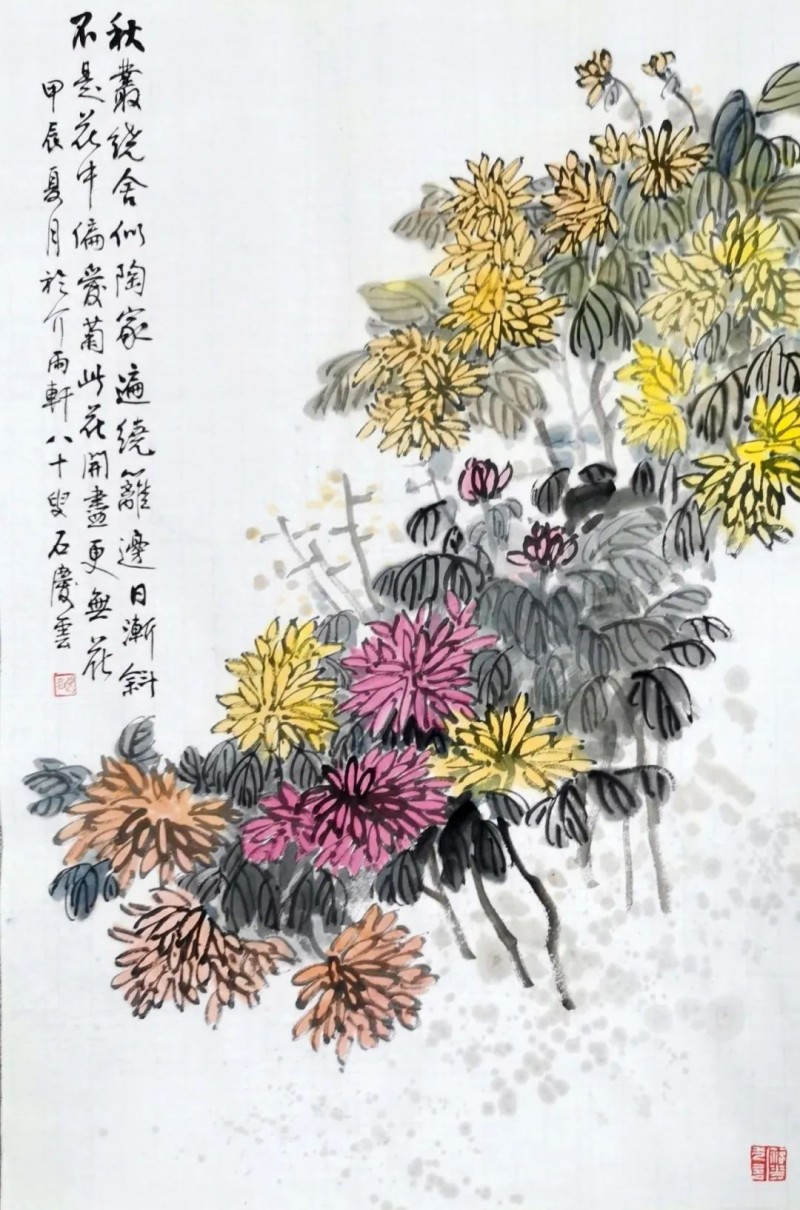 秋叢绕舍似陶家遍繞籬邊日漸斜
不是花中偏愛菊此花開盡更無花
甲辰夏月於介雨軒八十叟石慶雲